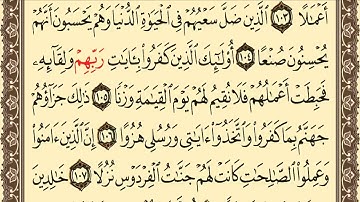 أَعْمَٰلًا ١٠٣ الَّذِينَ ضَلَّ سَعْيُهُمْ فِى الْحَيَوٰةِ الدُّنْيَا وَهُمْ يَحْسَبُونَ أَنَّهُمْ
يُحْسِنُونَ صُنْعًا ١٠٤ أُو۟لَٰٓئِكَ الَّذِينَ كَفَرُوا۟ بِـَٔايَٰتِ رَبِّهِمْ وَلِقَآئِهِۦ
فَحَبِطَتْ أَعْمَٰلُهُمْ فَلَا نُقِيمُ لَهُمْ يَوْمَ الْقِيَٰمَةِ وَزْنًا ١٠٥ ذَٰلِكَ جَزَآؤُهُمْ
جَهَنَّمُ بِمَا كَفَرُوا۟ وَاتَّخَذُوٓا۟ ءَايَٰتِى وَرُسُلِى هُزُوًا ١٠٦ إِنَّ الَّذِينَ ءَامَنُوا۟
وَعَمِلُوا۟ الصَّٰلِحَٰتِ كَانَتْ لَهُمْ جَنَّٰتُ الْفِرْدَوْسِ نُزُلًا ١٠٧ خَٰلِدِينَ